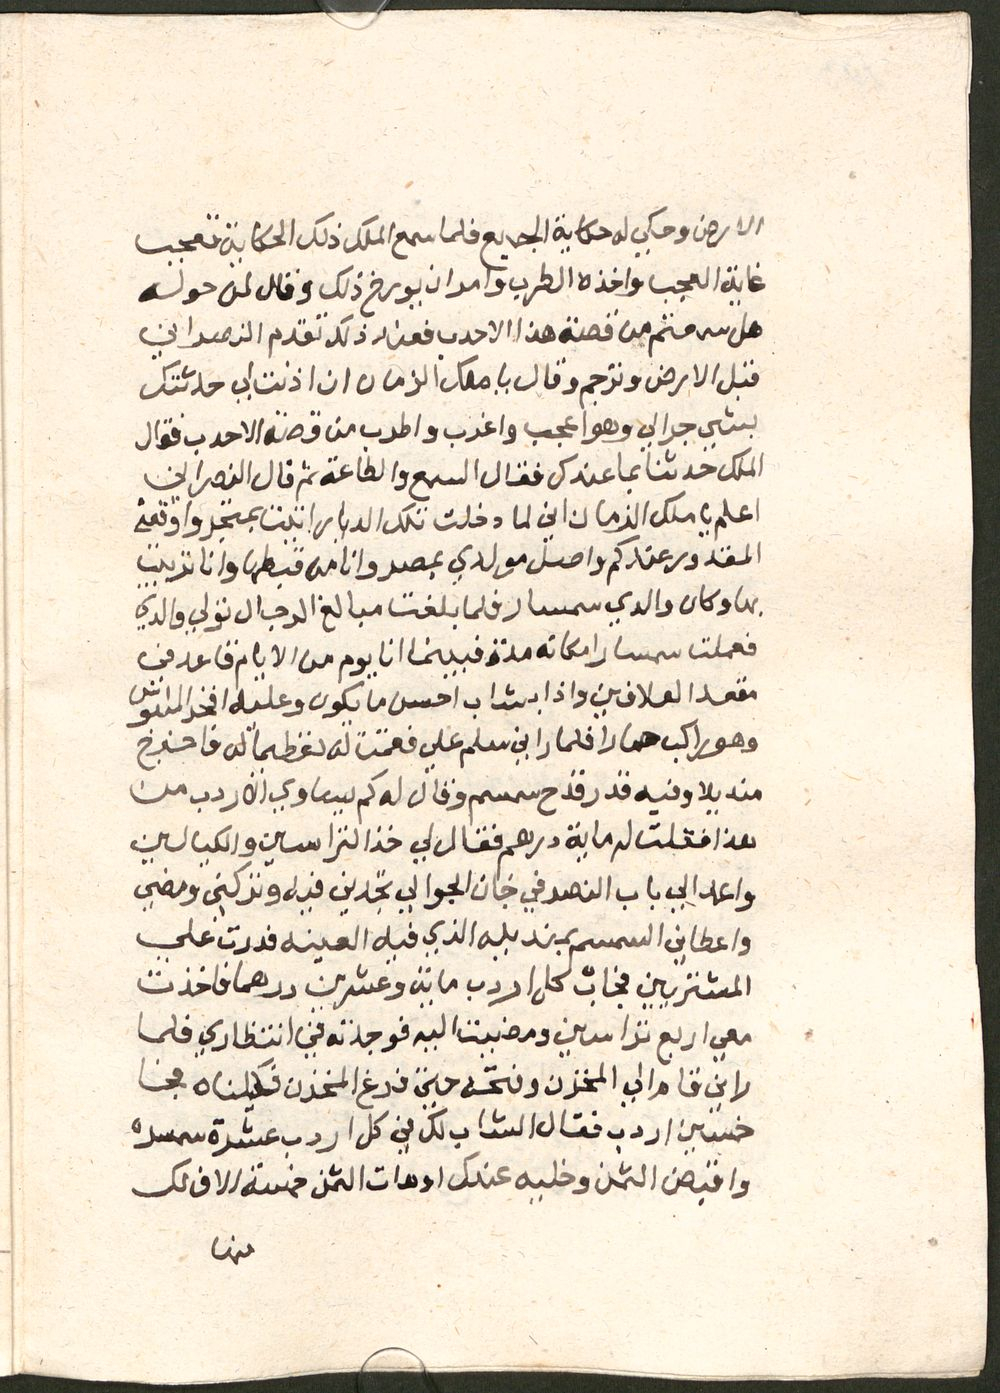 الارض وحكي له حكاية الجميع فلما سمع الملك ذلك الحكاية تعجب
غاية العجب واخذه الطرب وامر ان يورخ ذلك وقال لمن حوله
هل سمعتم من قصة هذا الاحدب فعند ذلك تقدم النصراني
قبل الارض وترجم وقال يا ملك الزمان ان اذنت لي حدثتك
بشي جرالي وهو اعجب واغرب واطرب من قصة الاحدب فقال
الملك حدثنا بما عندك فقال السمع والطاعة ثم قال النصراني
اعلم يا ملك الزمان اني لما دخلت تلك الديار اتيت بمتجر واوقعني
المقدور عندكم واصل مولدي بمصر وانا من قبطها وانا تربيت
بها وكان والدي سمسار فلما بلغت مبالغ الرجال توفي والدي
فعملت سمسارا مكانه مدة فبينما انا يوم من الايام قاعد في
مقعد العلافين واذا بشاب احسن ما يكون وعليه افخر الملبوس
وهو راكب حمارا فلما راني سلم علي فقمت له تعظيما له فاخرج
منديلا وفيه قدر قدح سمسم وقال له كم يساوي الاردب من
هذا فقلت له ماية درهم فقال لي خذ التراسين والكيالين
واعمد الي باب النصر في خان الجوالي تجدني فيه وتركني ومضي
واعطاني السمسم بمنديله الذي فيه العينه فدرت علي
المشتريين فجاب كل اردب ماية وعشرين درهما فاخذت
معي اربع تراسين ومضيت اليه فوجدته في انتظاري فلما
راني قام الي المخزن وفتحه حتي فرغ المخزن فكيلناه فجا
خمسين اردب فقال الشاب لك في كل اردب عشرة سمسره
واقبض الثمن وخليه عندك اوهات الثمن خمسة الاف لك
منها